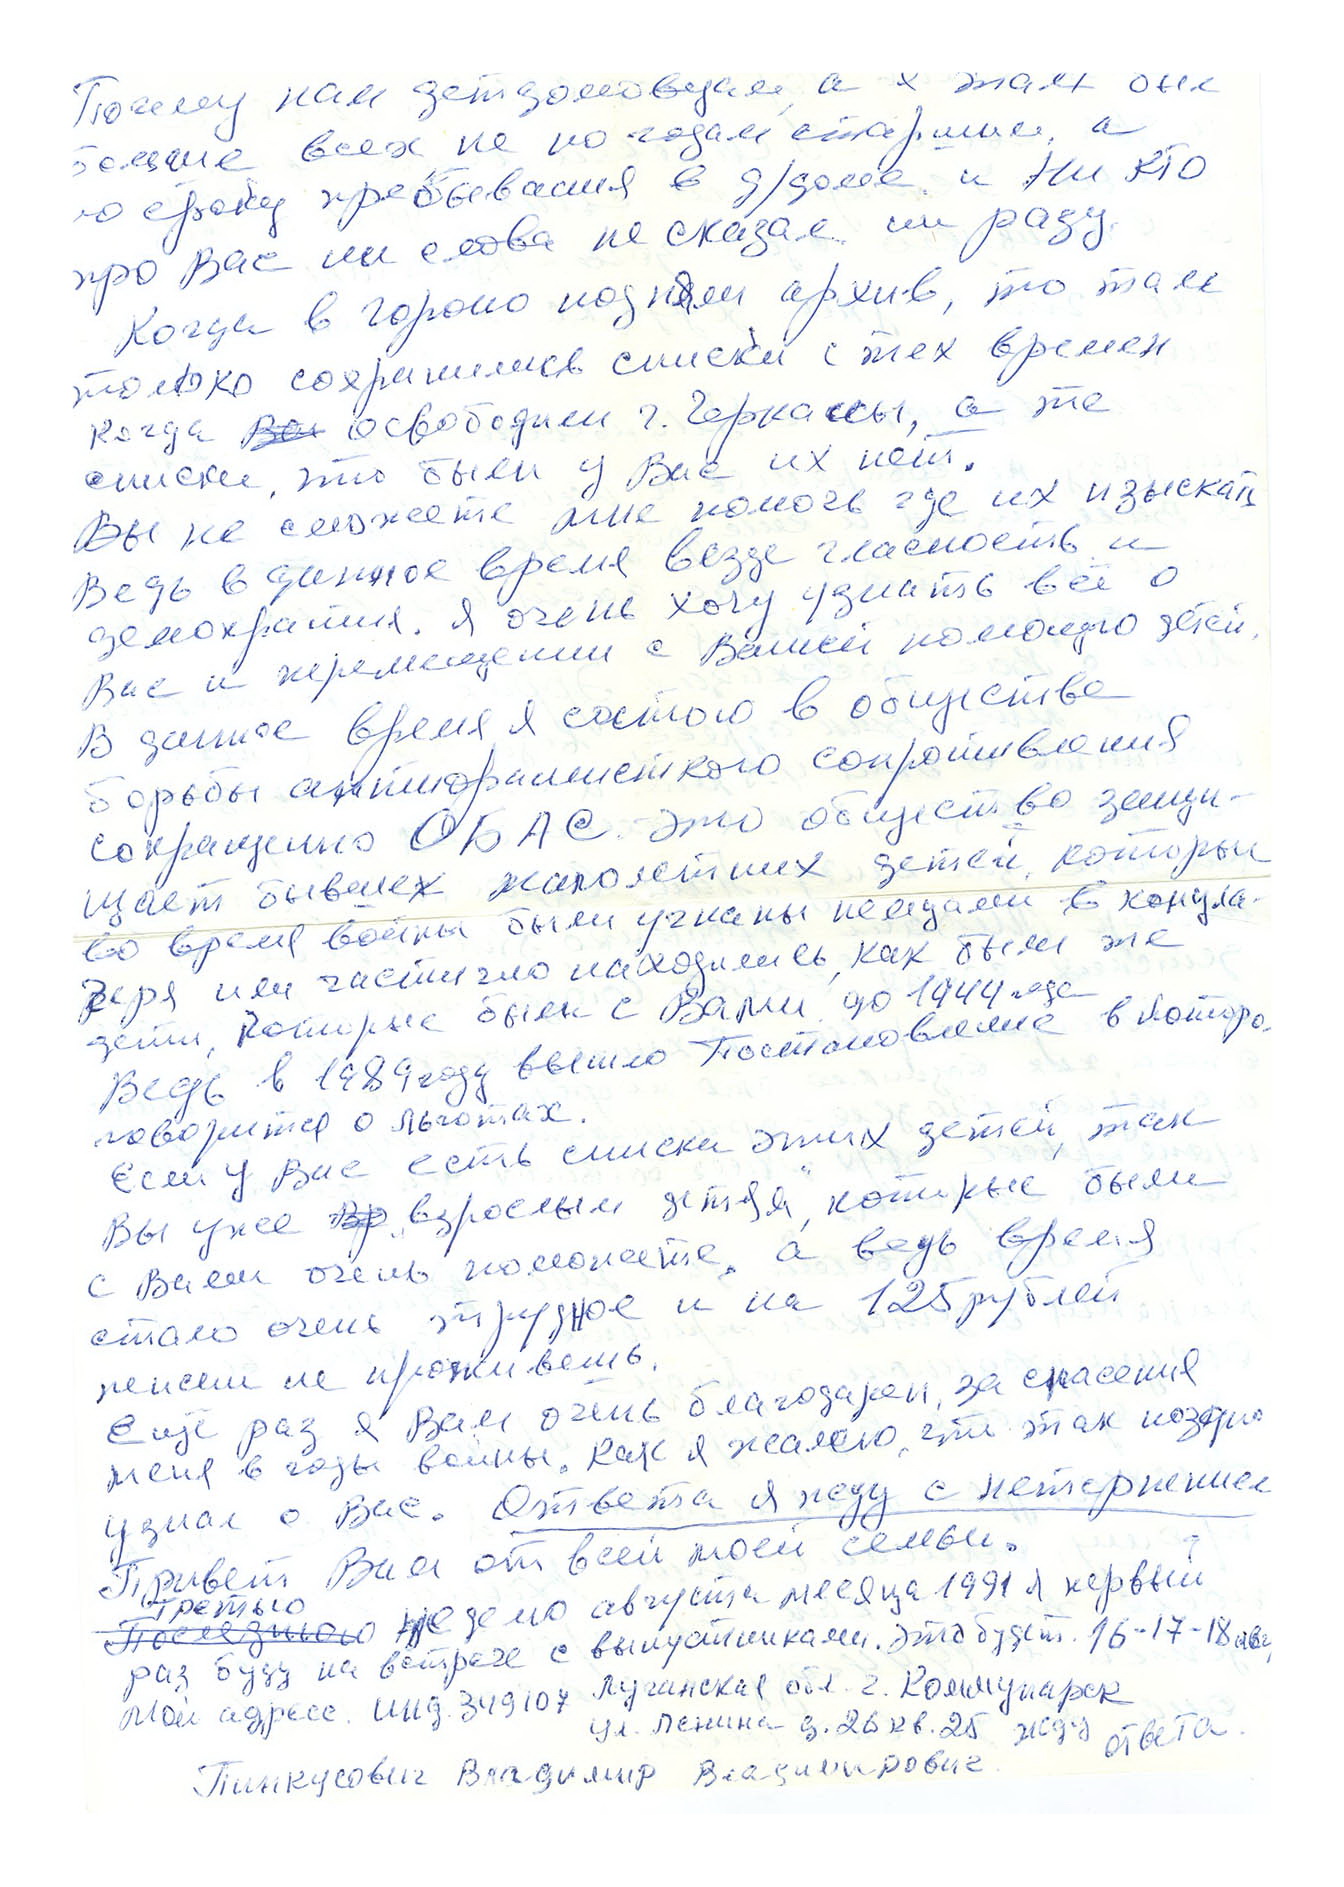 Почему нам детдомовцам, а я там был
больше всех не по годам старшим, а
по сроку пребывания в д/доме. и Ни КТО
про Вас ни слова не сказал ни разу.
Когда в гороно подняли архив, то там
только сохранились списки с тех времен
когда освободили г. Черкассы, а те
списки, что были у Вас их нет.
Вы не сможете мне помочь где их изыскать
Ведь в данное время везде гласность и
демократия. Я очень хочу узнать всё о
Вас и перемещении с Вашей помощью детей.
В данное время я состою в обществе
борьбы антифашисткого сопротивления
сокращенно ОБАС. Это общество защи-
щает бывших малолетних детей, которыи
во время войны были угнаны немцами в концла-
геря или частично находились, как были же
дети, которые были с Вами до 1944 года
Ведь в 1989 году вышло Постановление в котором
говорится о льготах.
Если у Вас есть списки этих детей, так
Вы уже "взрослым детям", которые были
с Вами очень поможете, а ведь время
стало очень трудное и на 125 рублей
пенсии не проживешь.
Ещё раз я Вам очень благодарен, за спасения
меня в годы войны. Как я жалею, что так поздно
узнал о Вас. Ответа я жду с нетерпением
Привет Вам от всей моей семьи.
Третью
Последнюю неделю августа месяца 1991 я первый
раз буду на встрече с выпустниками. Это будет. 16-17-18 авг,
Мой адрес. инд. 349107 Луганская обл. г. Коммунарск
ул. Ленина д. 26 кв. 25 жду ответа.
Пинкусович Владимир Владимирович.